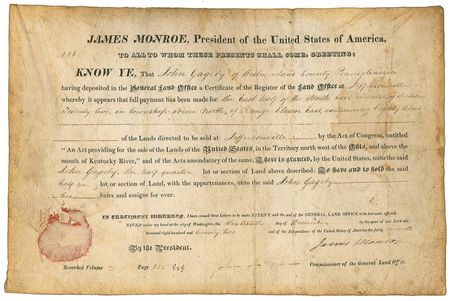 JAMES MONROE, President of the United States of America,
TO ALL TO WHOM THESE PRESENTS SHALL COME, GREETING:
KNOW YE, That John Gageby of County Pennsylvania
having deposited in the General Land Office a Certificate of the Register of the Land Office at Jeffersonville
whereby it appears that full payment has been made for the East half of the South East quarter of section
Twenty two, in township seven North, of Range Eleven East, containing Eighty acres
of the Lands directed to be sold at Jeffersonville by the Act of Congress, entitled
"An Act providing for the sale of the Lands of the United States, in the Territory north west of the Ohio, and above the
mouth of Kentucky River," and of the Acts amendatory of the same, There is granted, by the United States, unto the said
John Gageby, the half quarter lot or section of Land above described: To have and to hold the said
half qr lot or section of Land, with the appurtenances, unto the said John Gageby
his heirs and assigns for ever.
In Testimony Whereof, I have caused these Letters to be made PATENT, and the seal of the GENERAL LAND OFFICE to be hereunto affixed.
GIVEN under my hand at the city of Washington, the day of December in the year of our Lord one
thousand eight hundred and twenty two and of the Independence of the United States of America the forty
By the President. James Monroe
Recorded Volume Page Commissioner of the General Land Office.